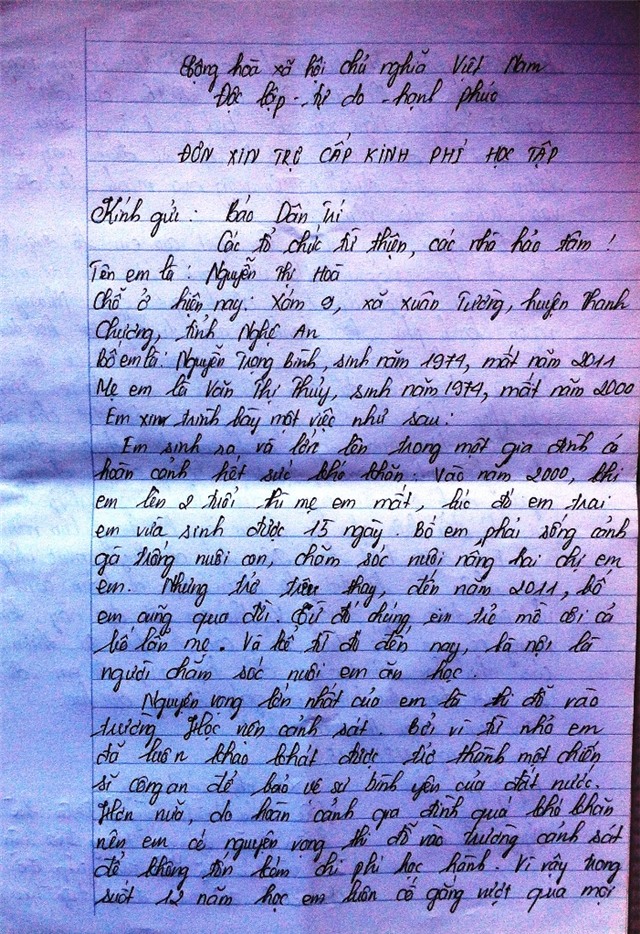 Cộng hoà xã hội chủ nghĩa Việt Nam
Độc lập - tự do - hạnh phúc
ĐƠN XIN TRỢ CẤP KINH PHÍ HỌC TẬP
Kính gửi: Báo Dân Trí
Các tổ chức từ thiện, các nhà hảo tâm!
Tên em là: Nguyễn Thị Hoà
Chỗ ở hiện nay: Xóm 9, xã Xuân Tường, huyện Thanh
Chương, tỉnh Nghệ An
Bố em là: Nguyễn Trọng Bình, sinh năm 1974, mất năm 2011
Mẹ em là Văn Thị Thuỷ, sinh năm 1974, mất năm 2000
Em xin trình bày một việc như sau:
Em sinh ra và lớn lên trong một gia đình có
hoàn cảnh hết sức khó khăn. Vào năm 2000, khi
em lên 2 tuổi thì mẹ em mất, lúc đó em trai
em vừa sinh được 15 ngày. Bố em phải sống cảnh
gà trống nuôi con, chăm sóc nuôi nấng hai chị em
em. Nhưng trớ trêu thay, đến năm 2011, bố
em cũng qua đời. Từ đó chúng em trở mồ côi cả
bố lẫn mẹ. Và kể từ đó đến nay, bà nội là
người chăm sóc nuôi em ăn học.
Nguyện vọng lớn nhất của em là thi đỗ vào
trường Học viện cảnh sát. Bởi vì từ nhỏ em
đã luôn khao khát được trở thành một chiến
sĩ công an để bảo vệ sự bình yên của đất nước.
Hơn nữa, do hoàn cảnh gia đình quá khó khăn
nên em có nguyện vọng thi đỗ vào trường cảnh sát
để không tốn kém chi phí học hành. Vì vậy trong
suốt 12 năm học em luôn cố gắng vượt qua mọi